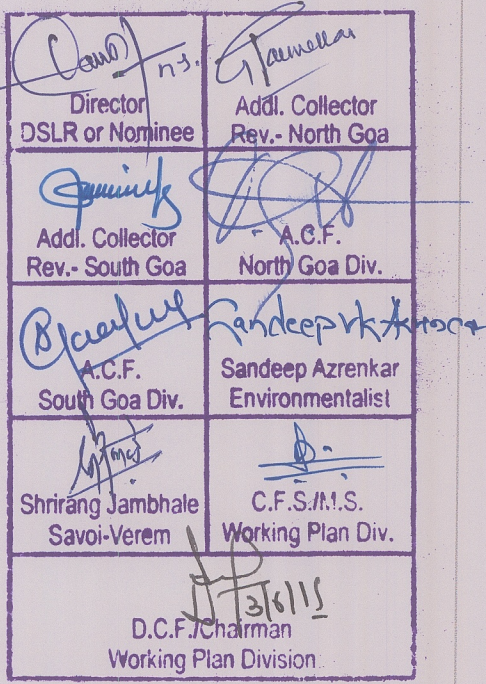 Director
DSLR or Nominee
Addl. Collector
Rev.- North Goa
Addl. Collector
Rev.- South Goa
A.C.F.
North Goa Div.
A.C.F.
South Goa Div.
Sandeep
Sandeep Azrenkar
Environmentalist
Shrirang Jambhale
Savoi-Verem
C.F.S./M.S.
Working Plan Div.
3/6/15
D.C.F./Chairman
Working Plan Division